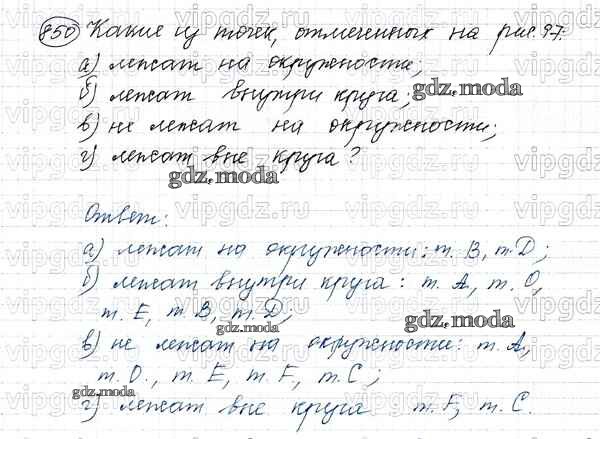 850 Какие из точек, отмеченных на рис. 97:
а) лежат на окружности;
б) лежат внутри круга;
gdz.moda
в) не лежат на окружности;
г) лежат вне круга?
gdz.moda
Ответ:
а) лежат на окружности: т. В, т. D;
б) лежат внутри круга: т. А, т. О,
т. Е, т. В, т. D;
gdz.moda
gdz.moda
в) не лежат на окружности: т. А,
т. О., т. Е, т. F, т. С;
gdz.moda
г) лежат вне круга т. F, т. С.